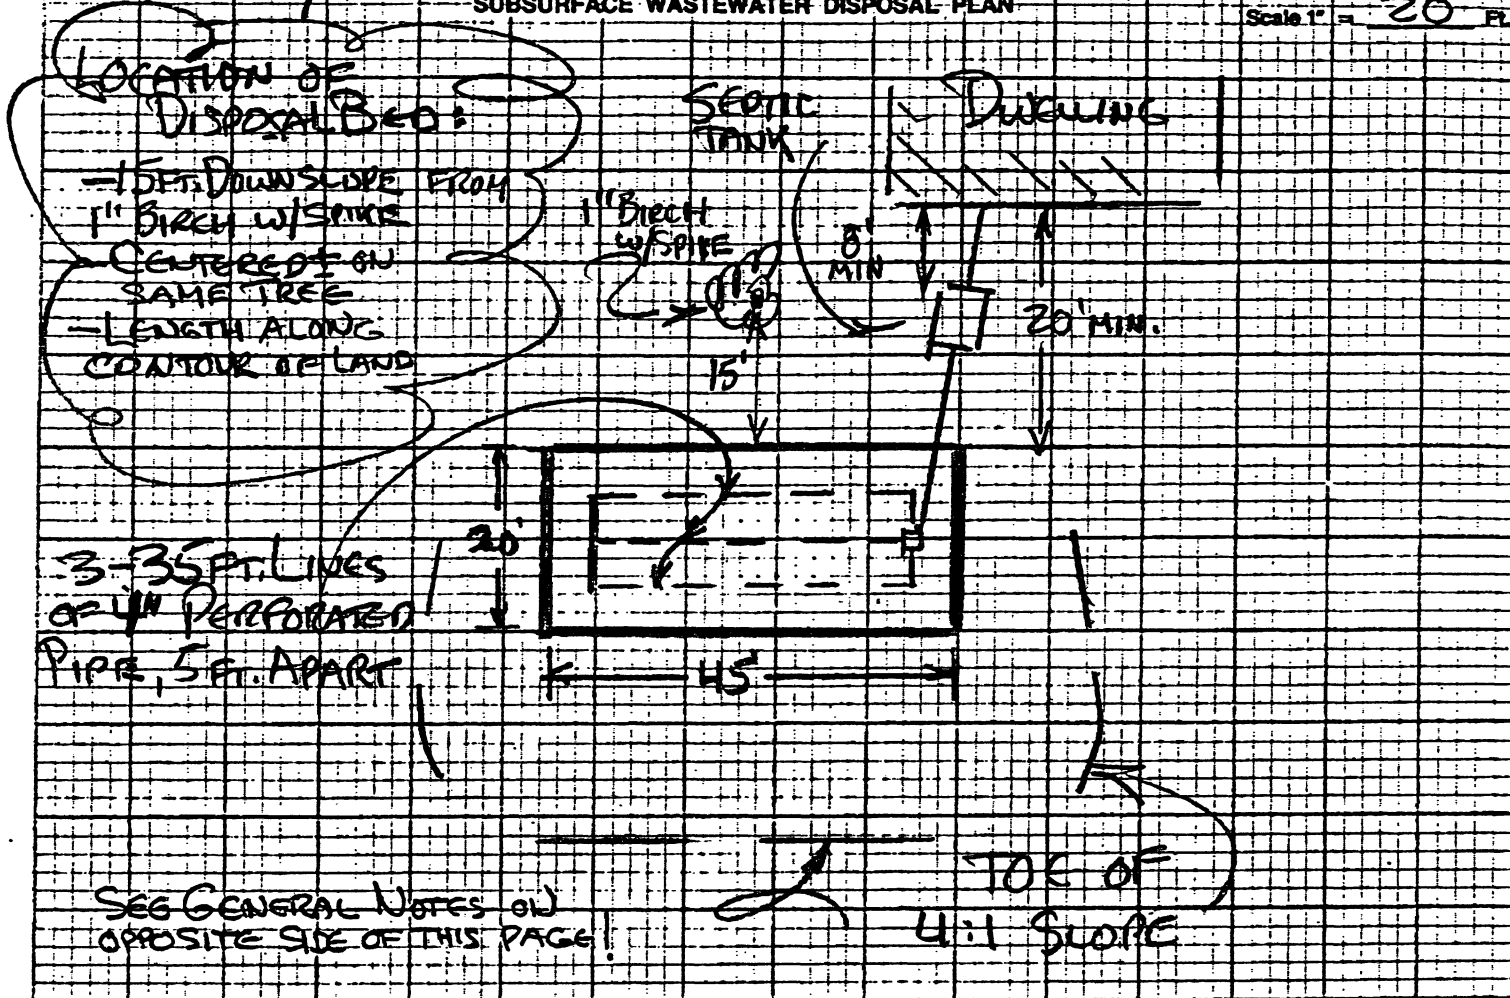 SUBSURFACE WASTEWATER DISPOSAL PLAN
Scale 1" = 20 Ft.
LOCATION OF
DISPOSAL BED:
-15 FT. DOWNSLOPE FROM
1" BIRCH W/SPIKE
-CENTERED ± ON
SAME TREE
-LENGTH ALONG
CONTOUR OF LAND
SEPTIC
TANK
DWELLING
1" BIRCH
W/SPIKE
8'
MIN
20' MIN.
15'
20'
3-35 FT. LINES
OF 4" PERFORATED
PIPE, 5 FT. APART
45'
TOE OF
4:1 SLOPE
SEE GENERAL NOTES ON
OPPOSITE SIDE OF THIS PAGE!